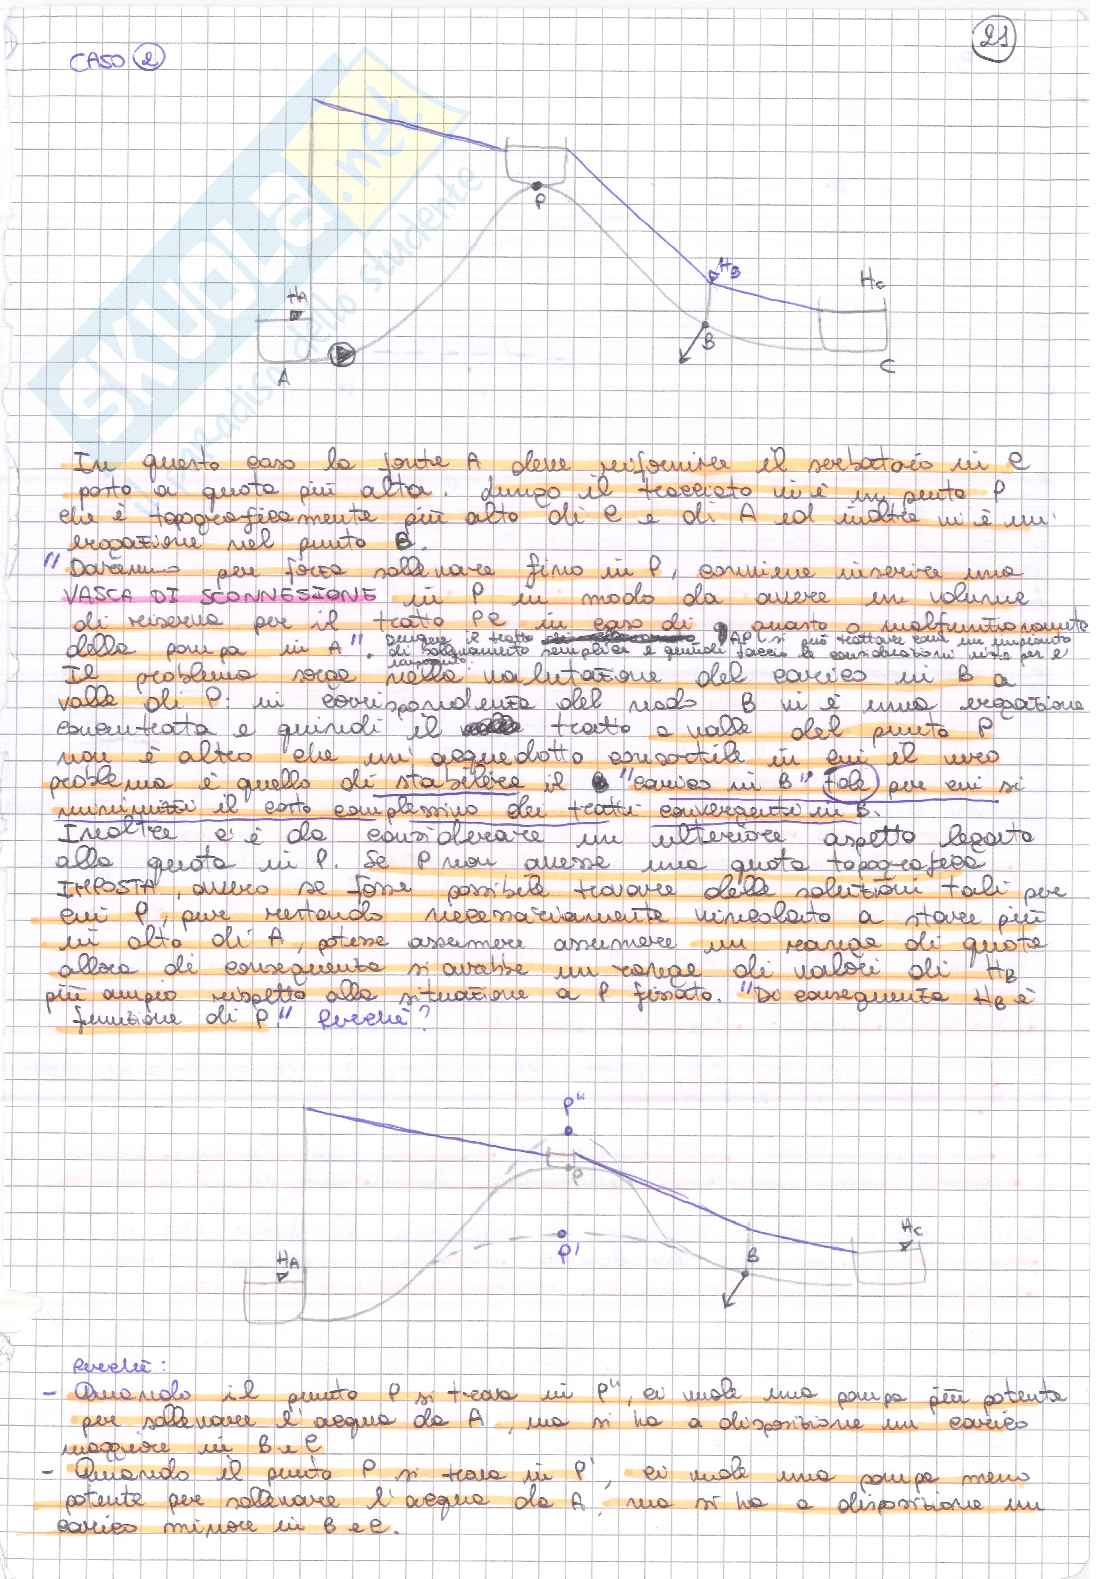 21
CASO 2
SKUOLA.net
paradiso dello studente
P
HB
HC
HA
B
A
C
In questo caso la fonte A deve rifornire il serbatoio in C
posto a quota più alta. Lungo il tracciato vi è un punto P
che è topograficamente più alto di C e di A ed inoltre vi è un'
erogazione nel punto B.
"Dovremo per forza sollevare fino in P, conviene inserire una
VASCA DI SCONNESIONE in P in modo da avere un volume
di riserva per il tratto PC in caso di guasto o malfunzionamento
della pompa in A". Dunque il tratto AP si può trattare come un impianto
di sollevamento semplice e quindi faccio le considerazioni viste per è
impianto.
Il problema sorge nella valutazione del carico in B a
valle di P: in corrispondenza del nodo B vi è una erogazione
concentrata e quindi il tratto a valle del punto P
non è altro che un'acquedotto consortile in cui il vero
problema è quello di stabilire il "carico in B" tale per cui si
minimizzi il costo complessivo dei tratti convergenti in B.
Inoltre c'è da considerare un ulteriore aspetto legato
alla quota in P. Se P non avesse una quota topografica
IMPOSTA, ovvero se fosse possibile trovare delle soluzioni tali per
cui P, pur restando necessariamente vincolato a stare più
in alto di A, potesse assumere assumere un range di quote
allora di conseguenza si avrebbe un range di valori di HB
più ampio rispetto alla situazione a P fissato. "Di conseguenza HB è
funzione di P." Perchè?
P"
P
HC
P'
B
HA
Perchè:
- Quando il punto P si trova in P", ci vuole una pompa più potente
per sollevare l'acqua da A, ma si ha a disposizione un carico
maggiore in B e C
- Quando il punto P si trova in P', ci vuole una pompa meno
potente per sollevare l'acqua da A, ma si ha a disposizione un
carico minore in B e C.